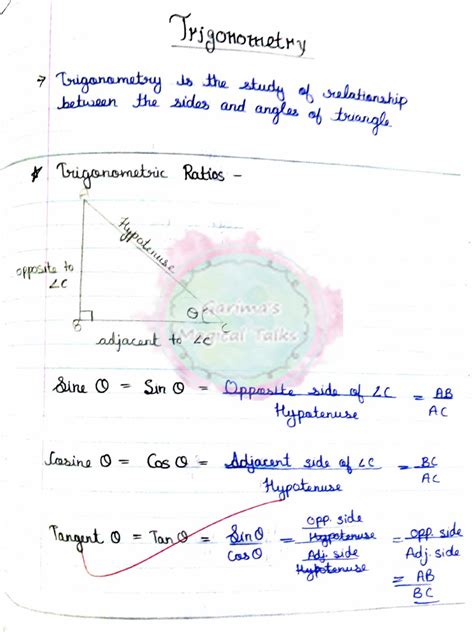 Trigonometry
→ Trigonometry is the study of relationship
between the sides and angles of triangle.
* Trigonometric Ratios -
A
Hypotenuse
opposite to
∠C
θ
B
C
adjacent to ∠C
Garima's
Magical Talks
Sine θ = Sin θ = Opposite side of ∠C / Hypotenuse = AB / AC
Cosine θ = Cos θ = Adjacent side of ∠C / Hypotenuse = BC / AC
Tangent θ = Tan θ = Sin θ / Cos θ = Opp. side / Hypotenuse / Adj. side / Hypotenuse = Opp. side / Adj. side
= AB / BC